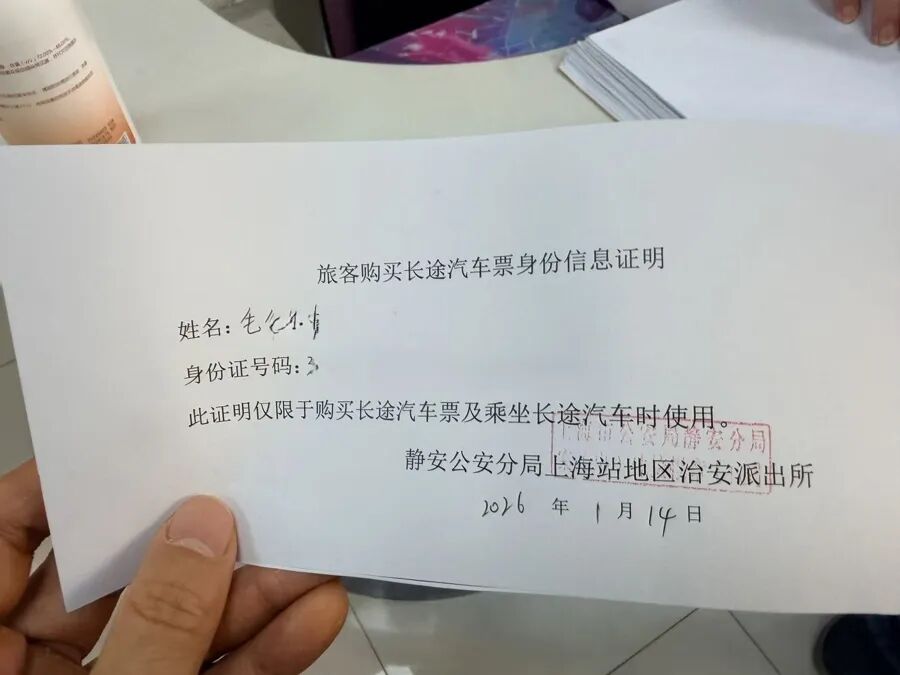 旅客购买长途汽车票身份信息证明
姓名：
身份证号码：
此证明仅限于购买长途汽车票及乘坐长途汽车时使用。
上海市公安局静安分局
静安公安分局上海站地区治安派出所
2026 年 1 月 14 日